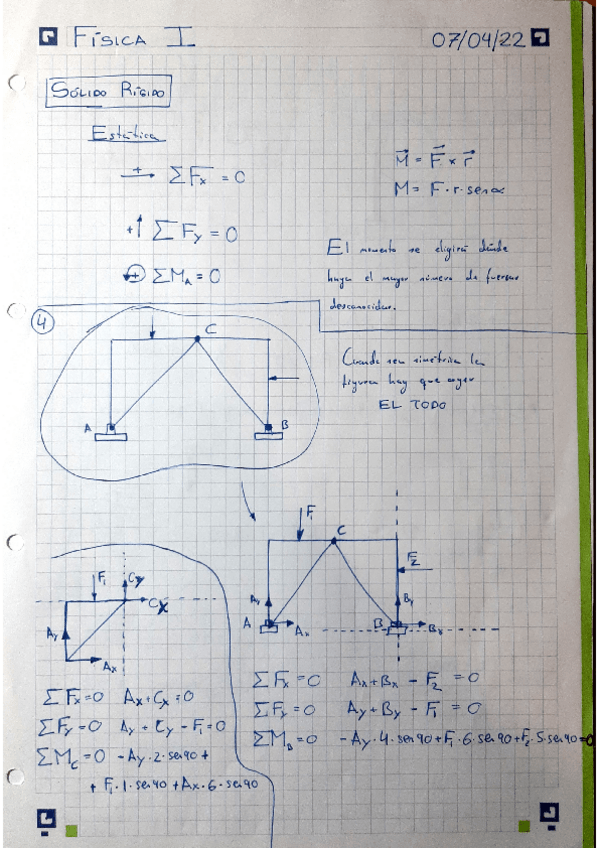 FÍSICA I 07/04/22
SÓLIDO RÍGIDO
Estática
+ ΣFx = 0
M = F x r
M = F · r · sen α
+ ΣFy = 0
+ ΣMA = 0
El momento se eligirá donde
haya el mayor número de fuerzas
desconocidas.
4
C
A B
Cuando sea simétrica la
figura hay que coger
EL TODO
F1 C F2
Ay A Ax By B Bx
F1 Cy Cx
Ay Ax
ΣFx = 0 Ax + Cx = 0
ΣFy = 0 Ay + Cy - F1 = 0
ΣMC = 0 - Ay · 2 · sen 90 +
+ F1 · 1 · sen 90 + Ax · 6 · sen 90
ΣFx = 0 Ax + Bx - F2 = 0
ΣFy = 0 Ay + By - F1 = 0
ΣMB = 0 - Ay · 4 · sen 90 + F1 · 6 · sen 90 + F2 · 5 · sen 90 = 0